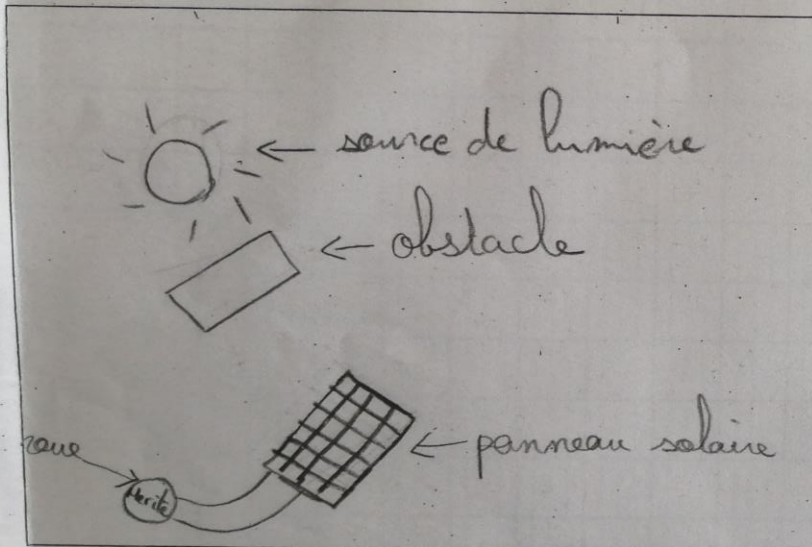 source de lumière
obstacle
panneau solaire
roue